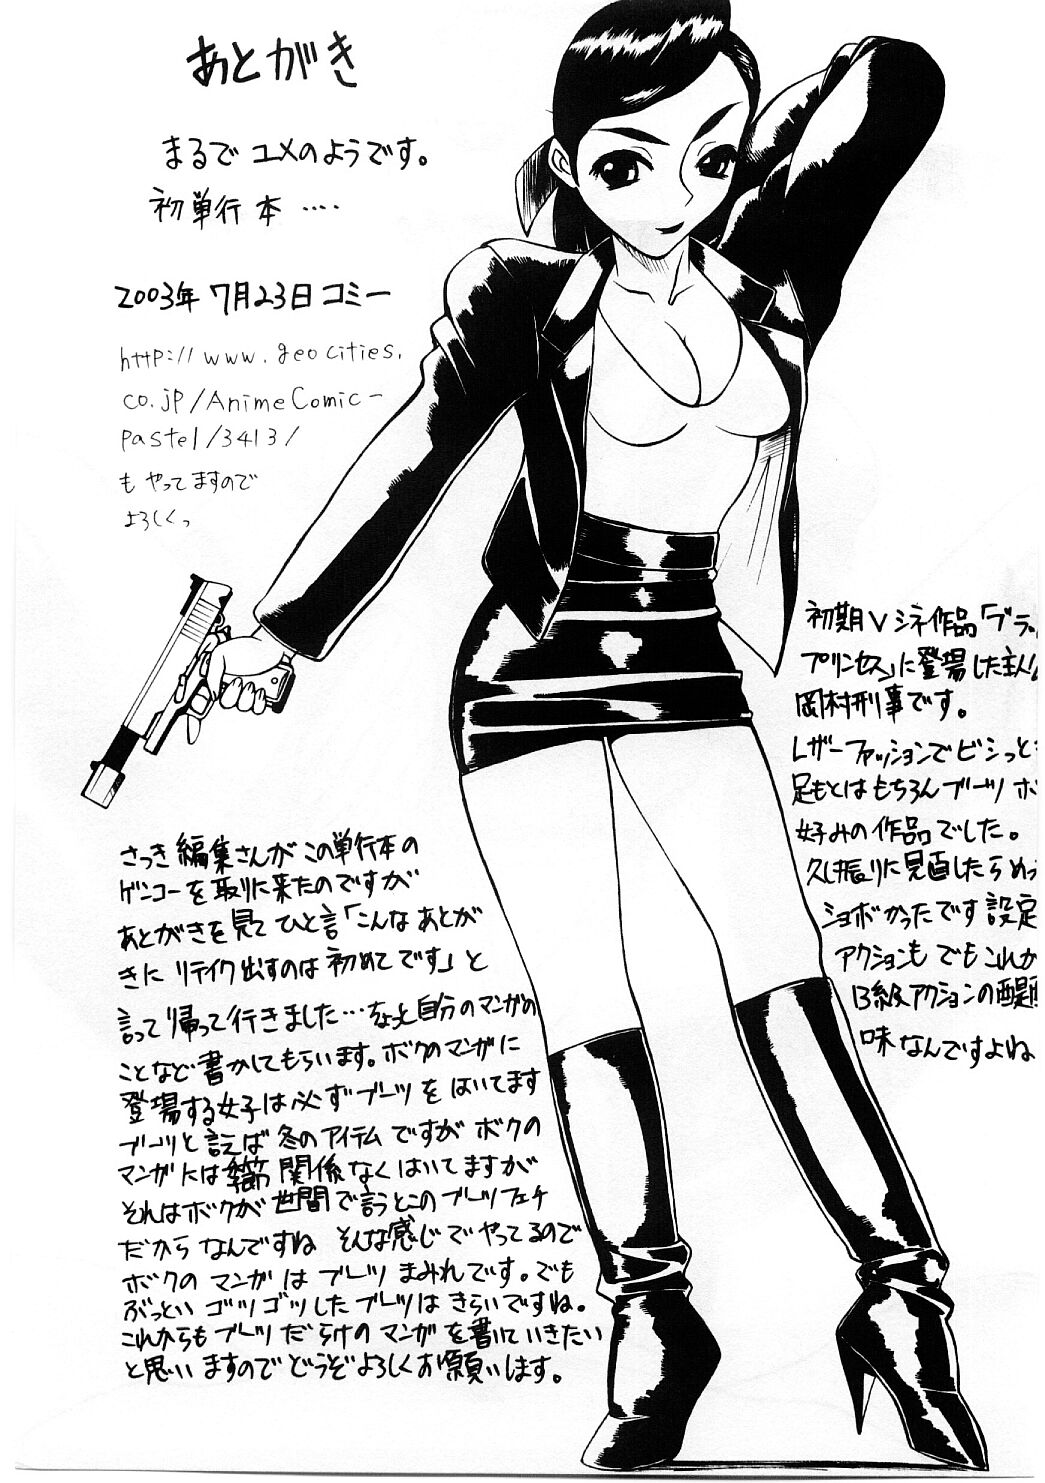 あとがき
まるでユメのようです。
初単行本‥‥
2003年7月23日コミー
http://www.geocities.
co.jp/AnimeComic-
Pastel/3413/
もやってますので
よろしくっ
初期Vシネ作品「ブラッ
プリンセス」に登場した主人
岡村刑事です。
レザーファッションでビシっと
足もとはもちろんブーツ ボ
好みの作品でした。
久し振りに見直したらめっ
ショボかったです 設定
アクションも でもこれが
B級アクションの醍醐
味なんですよね
さっき編集さんがこの単行本の
ゲンコーを取りに来たのですが
あとがきを見てひと言「こんなあとが
きに リテイク出すのは初めてです」と
言って帰って行きました…なっと自分のマンガの
ことなど書かしてもらいます。ボクのマンガに
登場する女子は必ずブーツをはいてます
ブーツと言えば冬のアイテムですがボクの
マンガには季節関係なくはいてますが
それはボクが世間で言うとこのブーツフェチ
だからなんですね そんな感じでやってるので
ボクのマンガはブーツまみれです。でも
ぶっといゴツゴツしたブーツはきらいですね。
これからもブーツだらけのマンガを書いていきたい
と思いますのでどうぞよろしくお願いします。